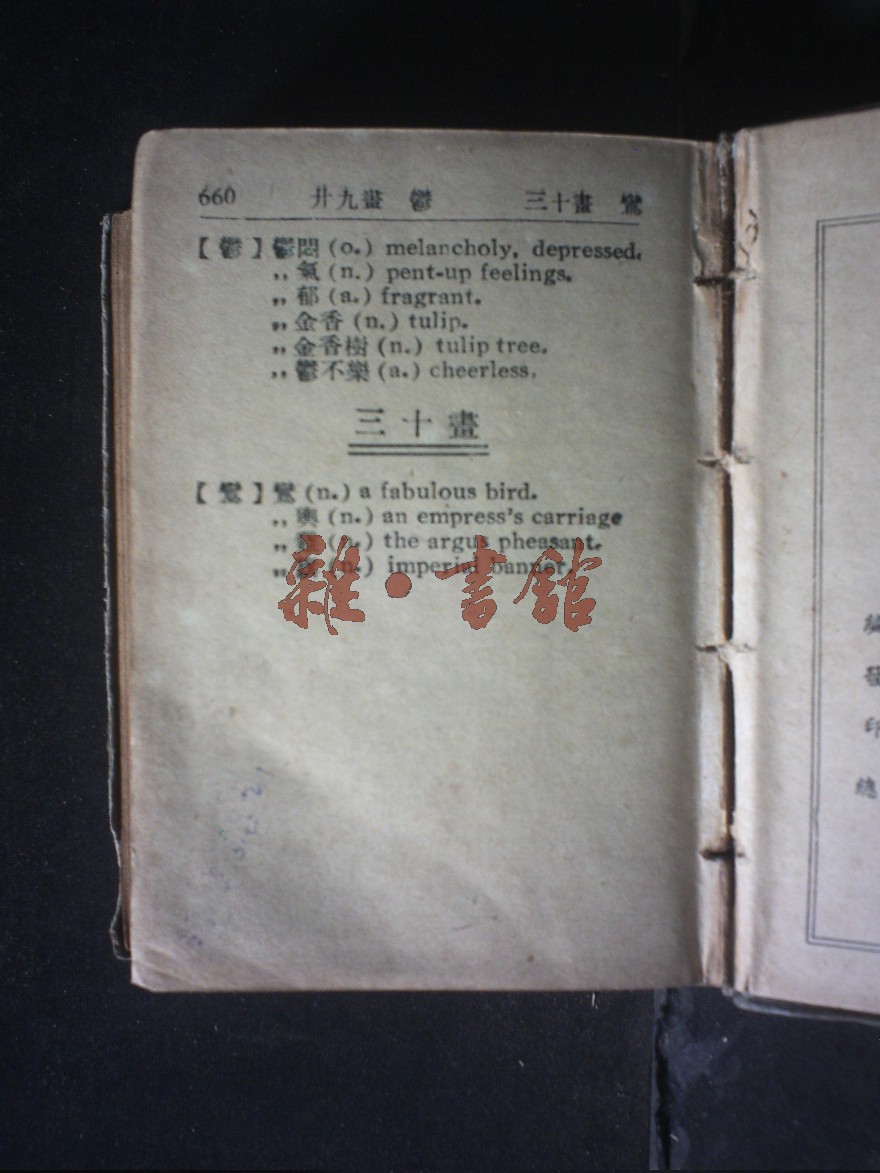 660 廿九畫 鬱 三十畫 鸞
【鬱】鬱悶 (o.) melancholy, depressed.
,, 氣 (n.) pent-up feelings.
,, 郁 (a.) fragrant.
,, 金香 (n.) tulip.
,, 金香樹 (n.) tulip tree.
,, 鬱不樂 (a.) cheerless.
三十畫
【鸞】鸞 (n.) a fabulous bird.
,, 輿 (n.) an empress's carriage
,, (n.) the argus pheasant.
,, (n.) imperial banner.
雜·書館
編
發
印
總